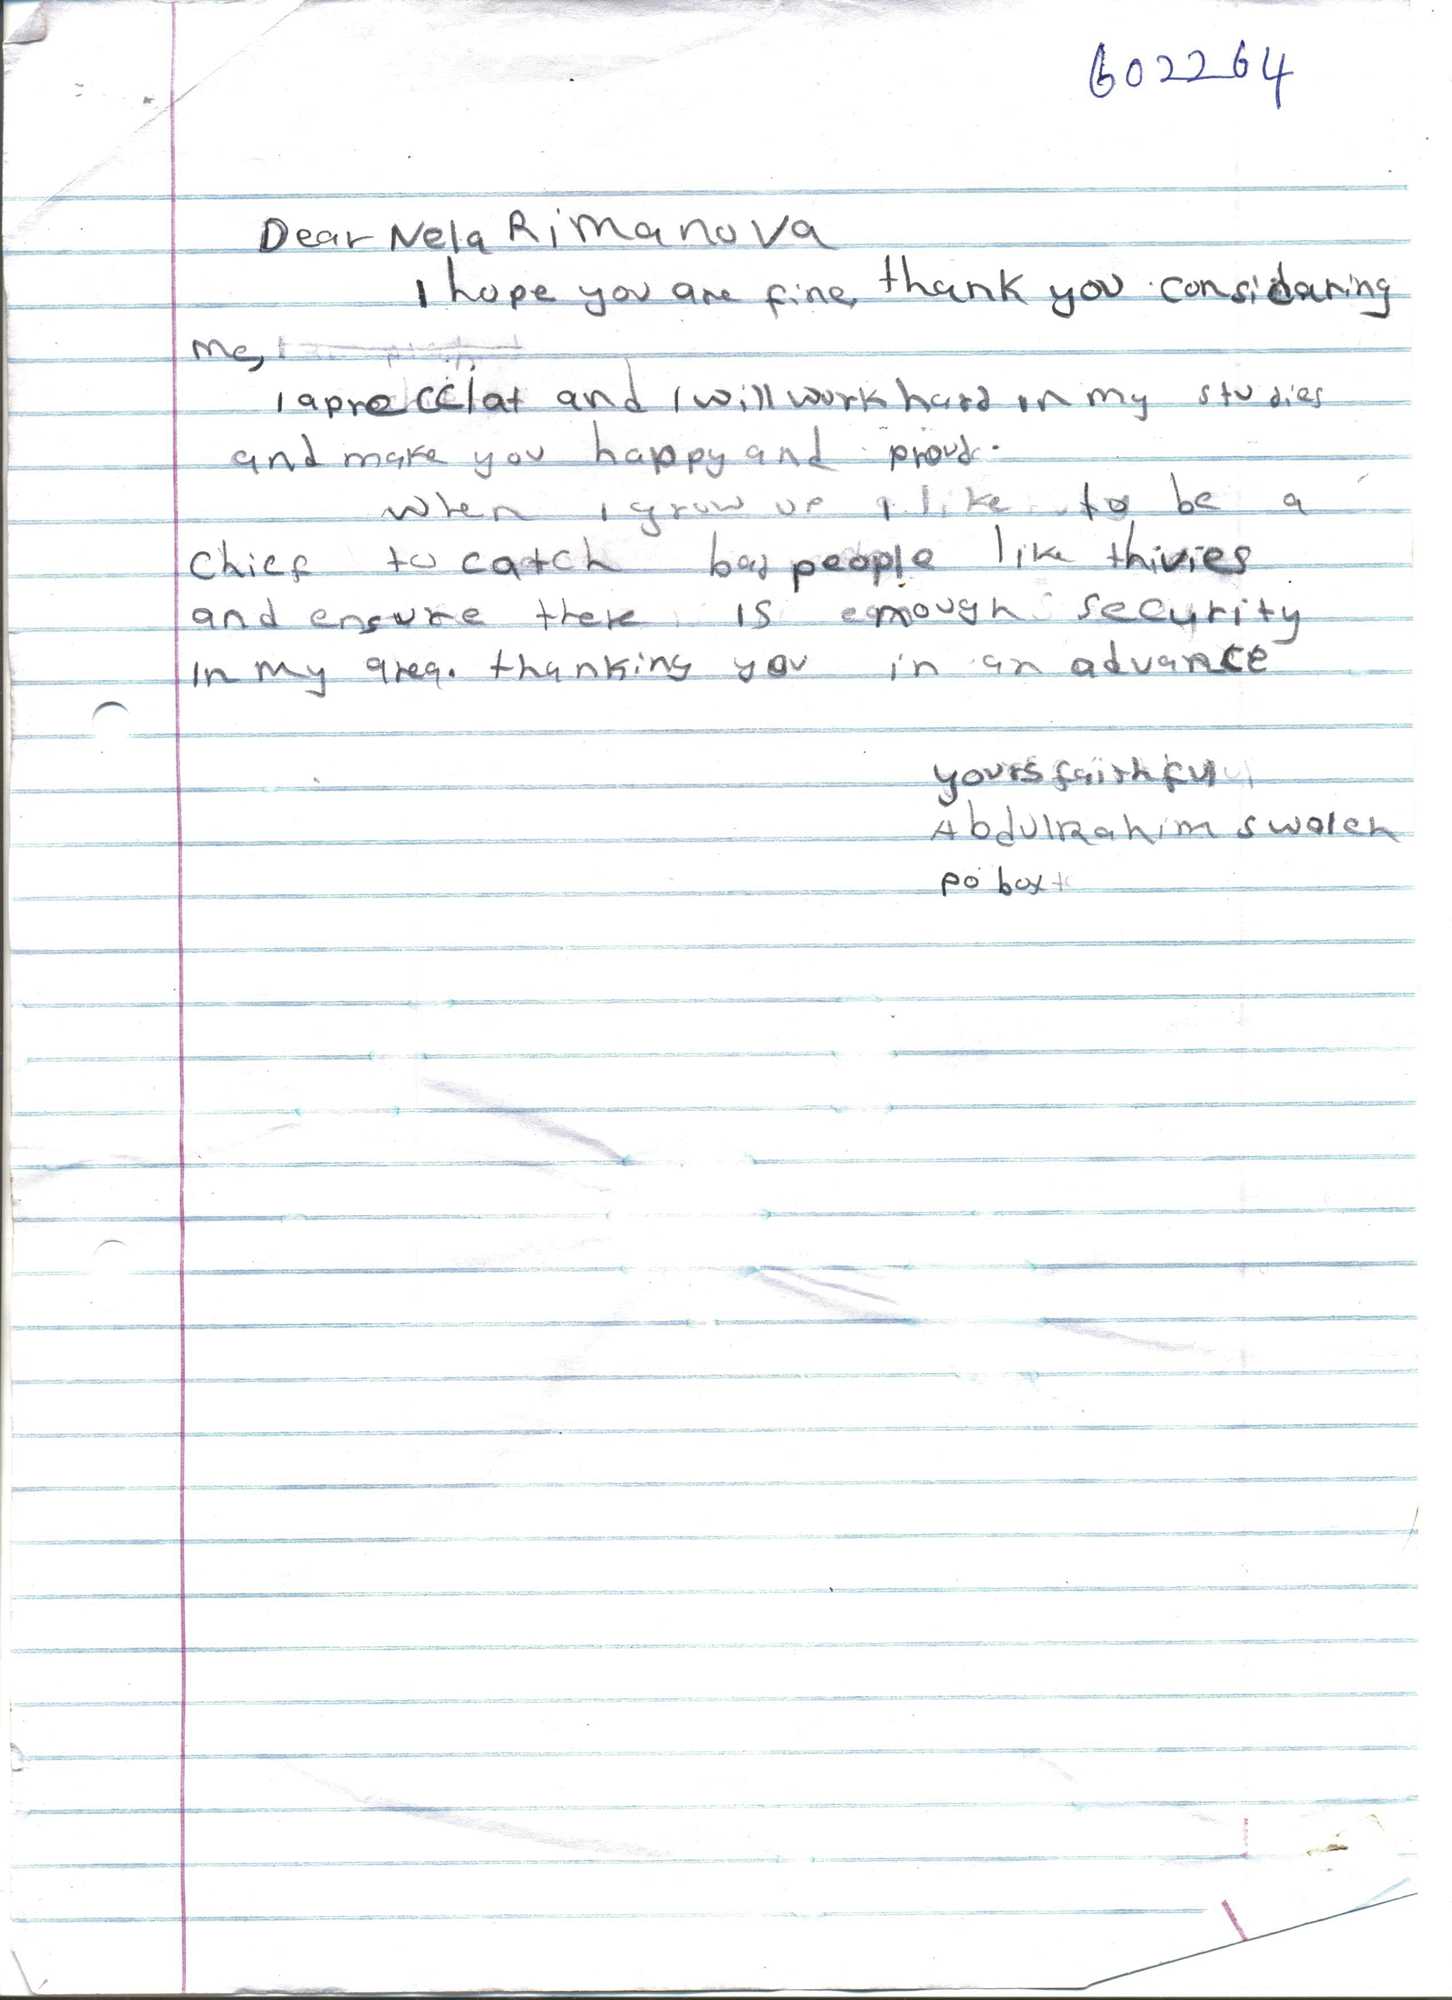 602264
Dear Nela Rimanova
I hope you are fine, thank you considaring
me,
I aprecciat and I will work hard in my studies
and make you happy and proud.
when I grow up I like to be a
chief to catch bad people like thivies
and ensure there is enough security
in my area. thanking you in an advance
yours faithful
Abdulrahim swaleh
po box